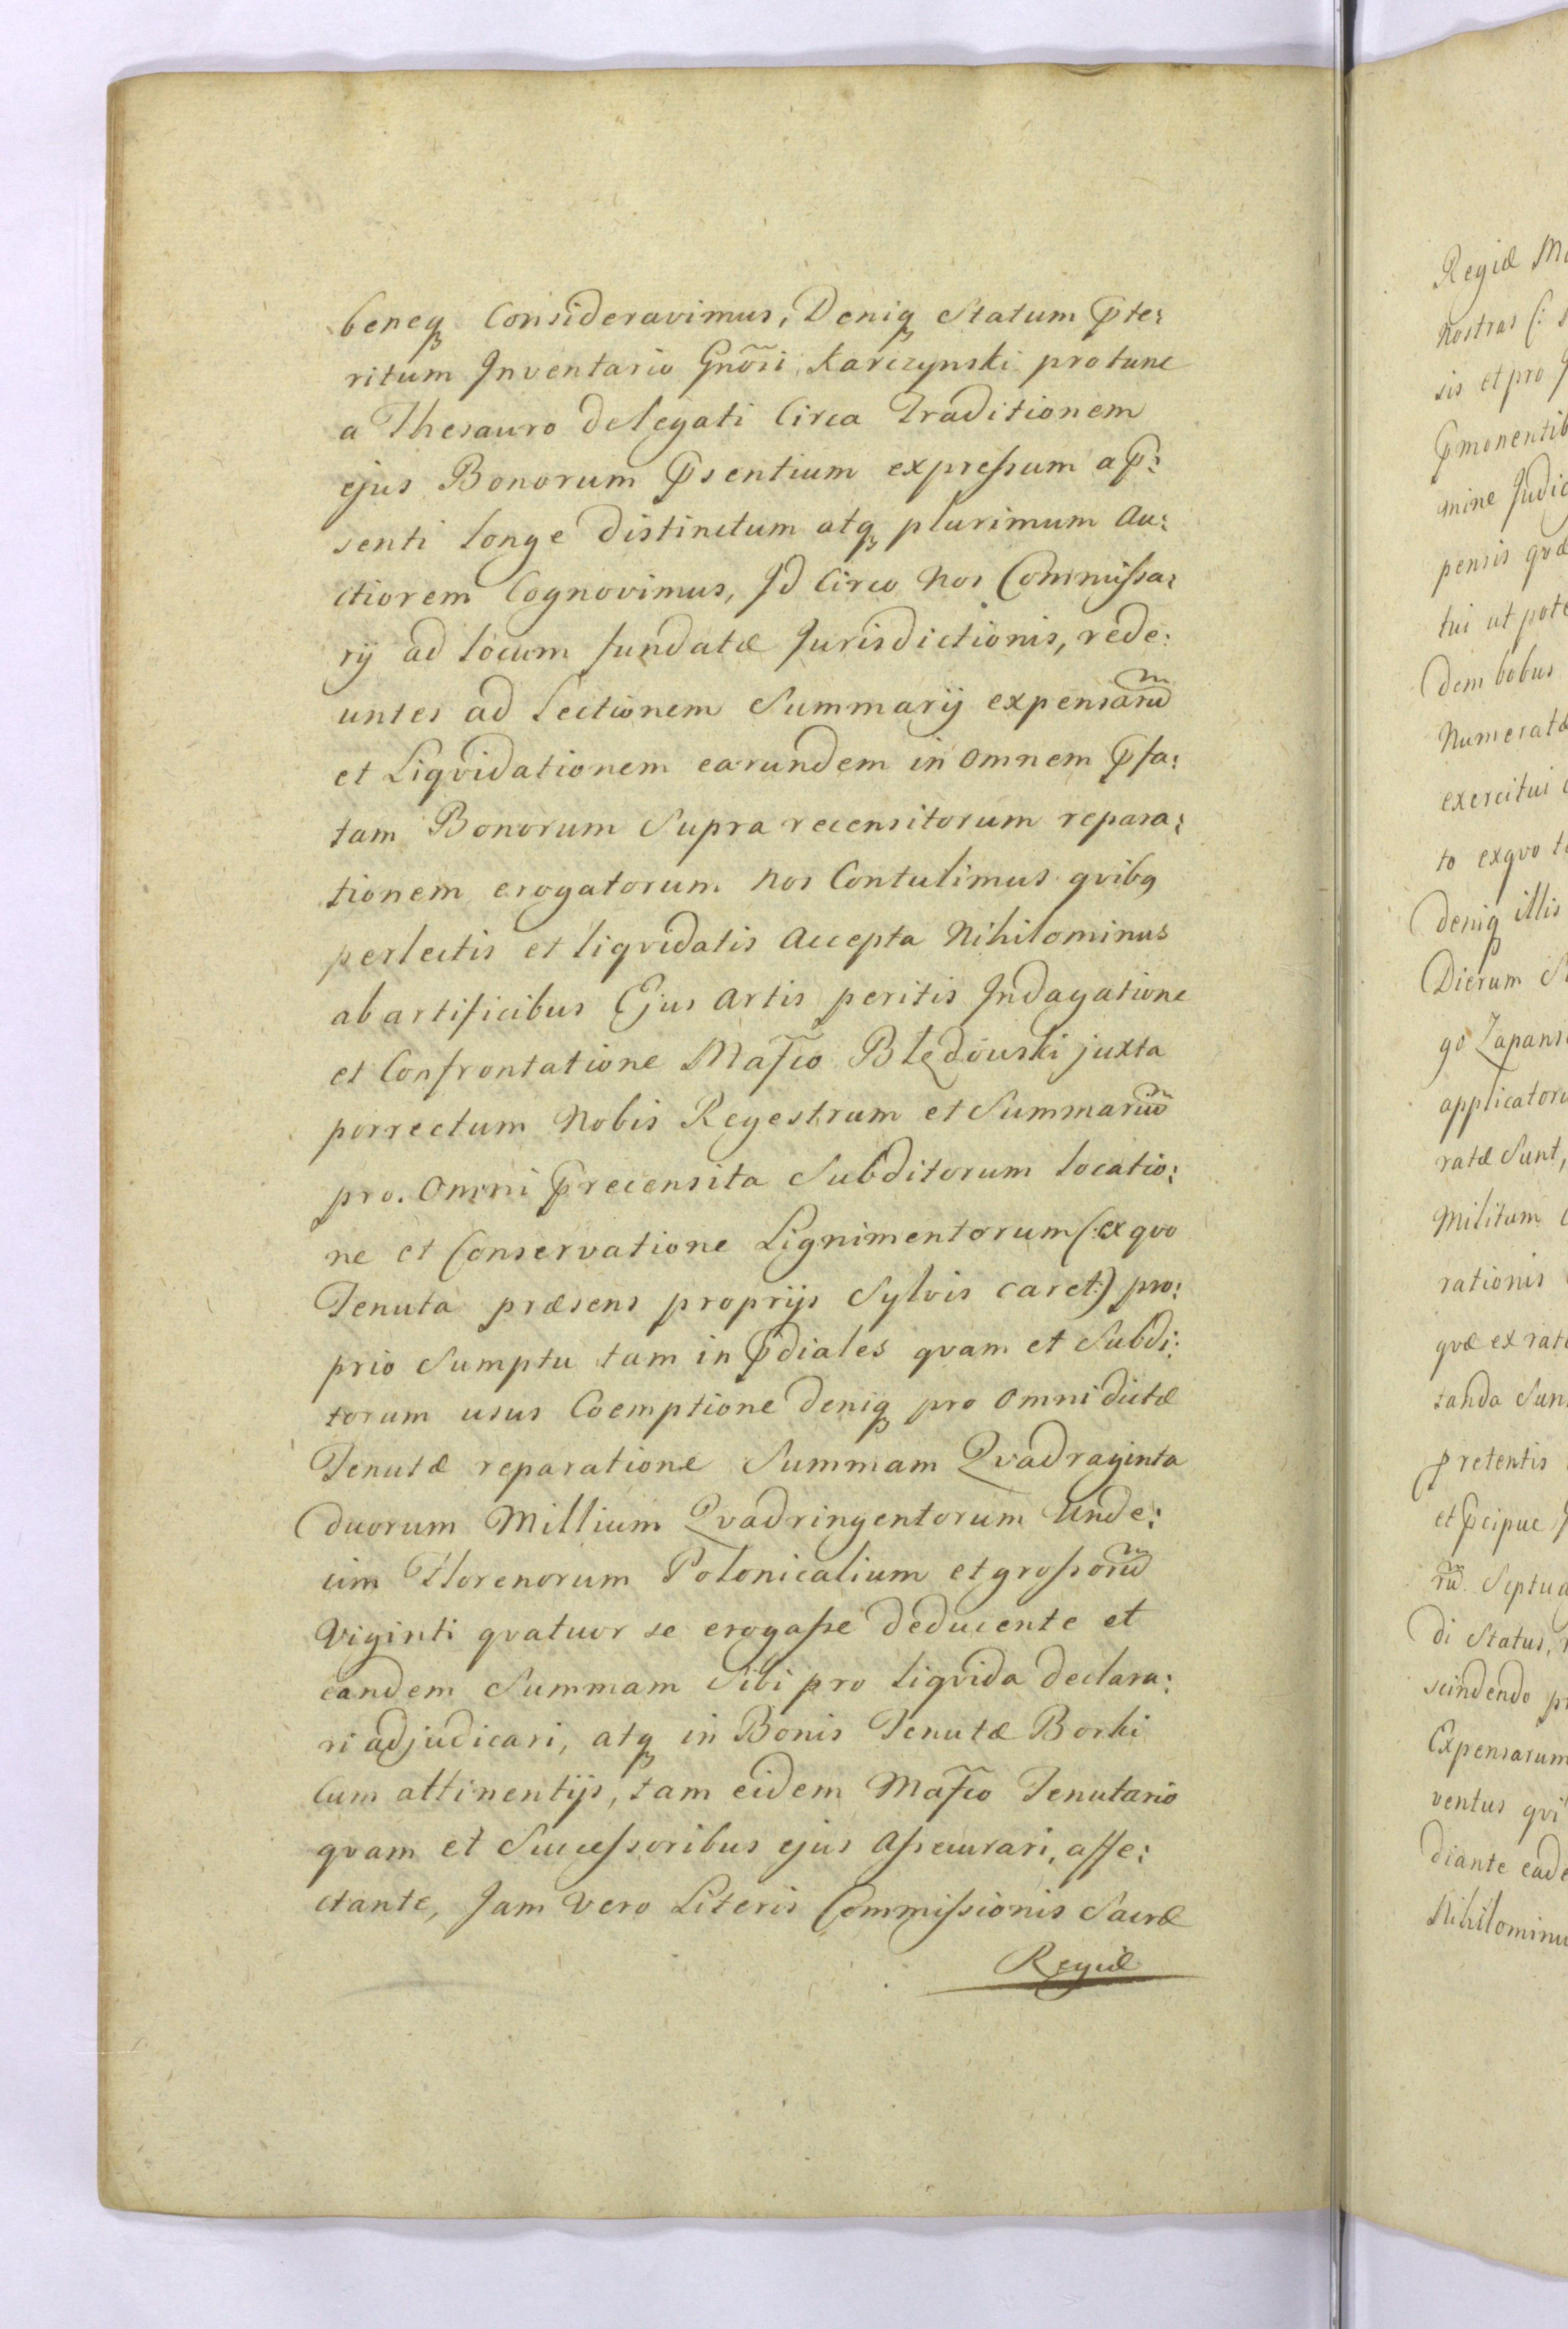 beneq Consideravimus, Deniq Statum p̃te:
ritum Inventario Gnõsi Karczynski pro tunc
a Thesauro delegati Circa Traditionem
ejus Bonorum p̃sentium expressum a p̃:
senti longe distinctum atq plurimum Au:
ctiorem Cognovimus, Id Circo Nos Commissa:
rij ad locum fundatæ Jurisdictionis, rede:
untes ad Lectionem Summarij expensarũ
et Liqvidationem earundem in omnem p̃fa:
tam Bonorum Supra recensitorum repara:
tionem erogatorum Nos Contulimus qvibq
perlectis et liqvidatis Accepta Nihilominus
ab artificibus Ejus Artis peritis Indagatione
et Confrontatione Mafco Błędowski juxta
porrectum Nobis Regestrum et Summariũ
pro. Omni p̃recensita Subditorum locatio:
ne et Conservatione Lignimentorum (: ex qvo
Tenuta præsens proprijs Sylvis caret :) pro:
prio Sumptu tam in p̃diales qvam et Subdi:
torum usus Coemptione deniq pro Omni dictæ
Tenutæ reparatione Summam Qvadraginta
duorum Millium Qvadringentorum Unde:
cim Florenorum Polonicalium et grossorũ
Viginti qvatuor se erogasse deducente et
eandem Summam Sibi pro liqvida declara:
ri adjudicari, atq in Bonis Tenutæ Borki
Cum attinentijs, tam eidem Mafco Tenutario
qvam et Successoribus ejus Assecurari, affe:
ctante, Jam Vero Literis Commissionis Sacræ
Regiæ
Regiæ
nostras (:
sis et pro
p̃monentib
mine
pensis qvæ
tui ut pote
dem bobus
Numeratæ
exercitui
to exqvo
deniq illis
Dierum
go
applicatoru
ratæ Sunt,
Militum
rationis
qvæ ex
tanda
p̃retentis
et p̃cipue
rũ Septua
di Status,
scindendo
Expensarum
ventus qvi
diante
Nihilominu